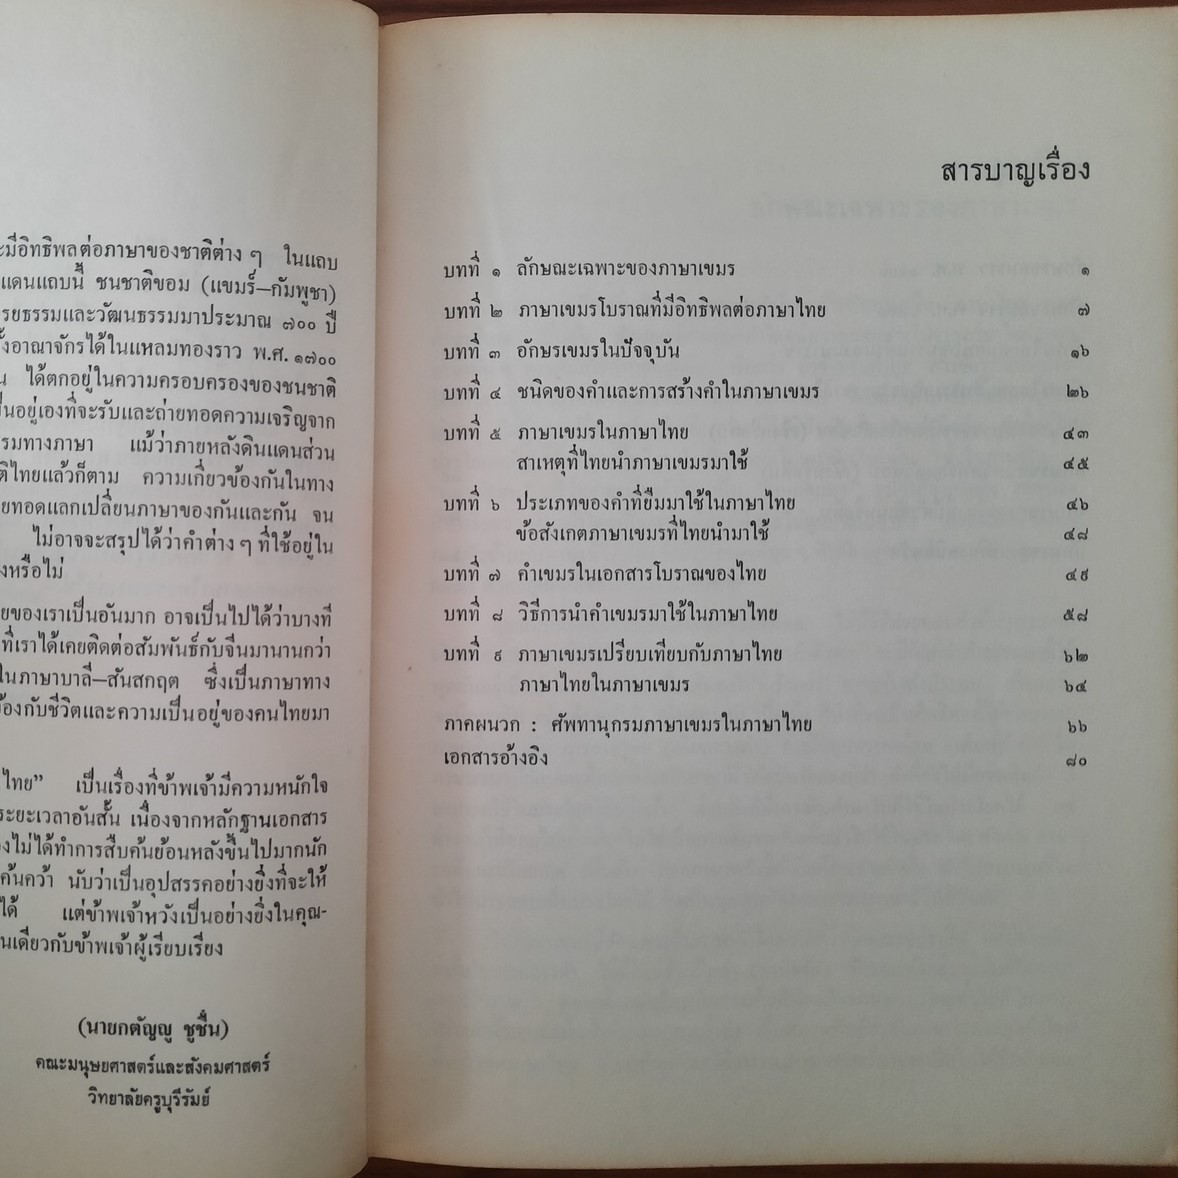 ะมีอิทธิพลต่อภาษาของชาติต่าง ๆ ในแถบ
แดนแถบนี้ ชนชาติขอม (แขมร์—กัมพูชา)
รยธรรมและวัฒนธรรมมาประมาณ ๗๐๐ ปี
ั้งอาณาจักรได้ในแหลมทองราว พ.ศ. ๑๗๐๐
น ได้ตกอยู่ในความครอบครองของชนชาติ
ป็นอยู่เองที่จะรับและถ่ายทอดความเจริญจาก
รมทางภาษา แม้ว่าภายหลังดินแดนส่วน
ติไทยแล้วก็ตาม ความเกี่ยวข้องกันในทาง
ยทอดแลกเปลี่ยนภาษาของกันและกัน จน
ไม่อาจจะสรุปได้ว่าคำต่าง ๆ ที่ใช้อยู่ใน
งหรือไม่
ยของเราเป็นอันมาก อาจเป็นไปได้ว่าบางที
ที่เราได้เคยติดต่อสัมพันธ์กับจีนมานานกว่า
ในภาษาบาลี—สันสกฤต ซึ่งเป็นภาษาทาง
ข้องกับชีวิตและความเป็นอยู่ของคนไทยมา
ไทย” เป็นเรื่องที่ข้าพเจ้ามีความหนักใจ
ระยะเวลาอันสั้น เนื่องจากหลักฐานเอกสาร
งไม่ได้ทำการสืบค้นย้อนหลังขึ้นไปมากนัก
ค้นคว้า นับว่าเป็นอุปสรรคอย่างยิ่งที่จะให้
ได้ แต่ข้าพเจ้าหวังเป็นอย่างยิ่งในคุณ-
นเดียวกับข้าพเจ้าผู้เรียบเรียง
(นายกตัญญู ชูชื่น)
คณะมนุษยศาสตร์และสังคมศาสตร์
วิทยาลัยครูบุรีรัมย์
สารบาญเรื่อง
บทที่ ๑ ลักษณะเฉพาะของภาษาเขมร ๑
บทที่ ๒ ภาษาเขมรโบราณที่มีอิทธิพลต่อภาษาไทย ๗
บทที่ ๓ อักษรเขมรในปัจจุบัน ๑๖
บทที่ ๔ ชนิดของคำและการสร้างคำในภาษาเขมร ๒๖
บทที่ ๕ ภาษาเขมรในภาษาไทย ๔๓
สาเหตุที่ไทยนำภาษาเขมรมาใช้ ๔๕
บทที่ ๖ ประเภทของคำที่ยืมมาใช้ในภาษาไทย ๔๖
ข้อสังเกตภาษาเขมรที่ไทยนำมาใช้ ๔๘
บทที่ ๗ คำเขมรในเอกสารโบราณของไทย ๔๙
บทที่ ๘ วิธีการนำคำเขมรมาใช้ในภาษาไทย ๕๘
บทที่ ๙ ภาษาเขมรเปรียบเทียบกับภาษาไทย ๖๒
ภาษาไทยในภาษาเขมร ๖๔
ภาคผนวก : ศัพทานุกรมภาษาเขมรในภาษาไทย ๖๖
เอกสารอ้างอิง ๘๐